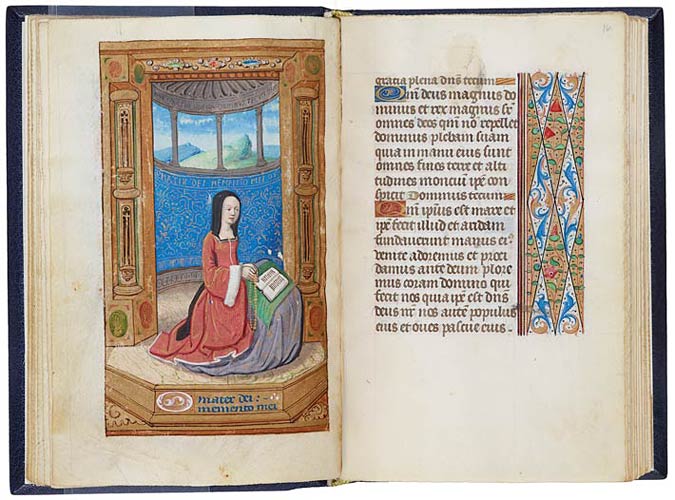 MATER DEI MEMENTO MEI
O mater dei :
memento mei
gratia plena dn̄s tecum
Qm̄ deus magnus do
minus et rex magnus sr̄
omnes deos qm̄ nō repellet
dominus plebem suam
quia in manu eius sunt
omnes fines terre et alti
tudines monciū ip̄e con
spicit Dominus tecum
Qm̄ ip̄ius est mare et
ip̄e fecit illud et aridam
fundaverunt manus ei⁹
venite adoremus et proci
damus ante deum plore
mus coram domino qui
fecit nos quia ip̄e est dn̄s
deus nr̄ nos autē populus
eius et oves pascue eius